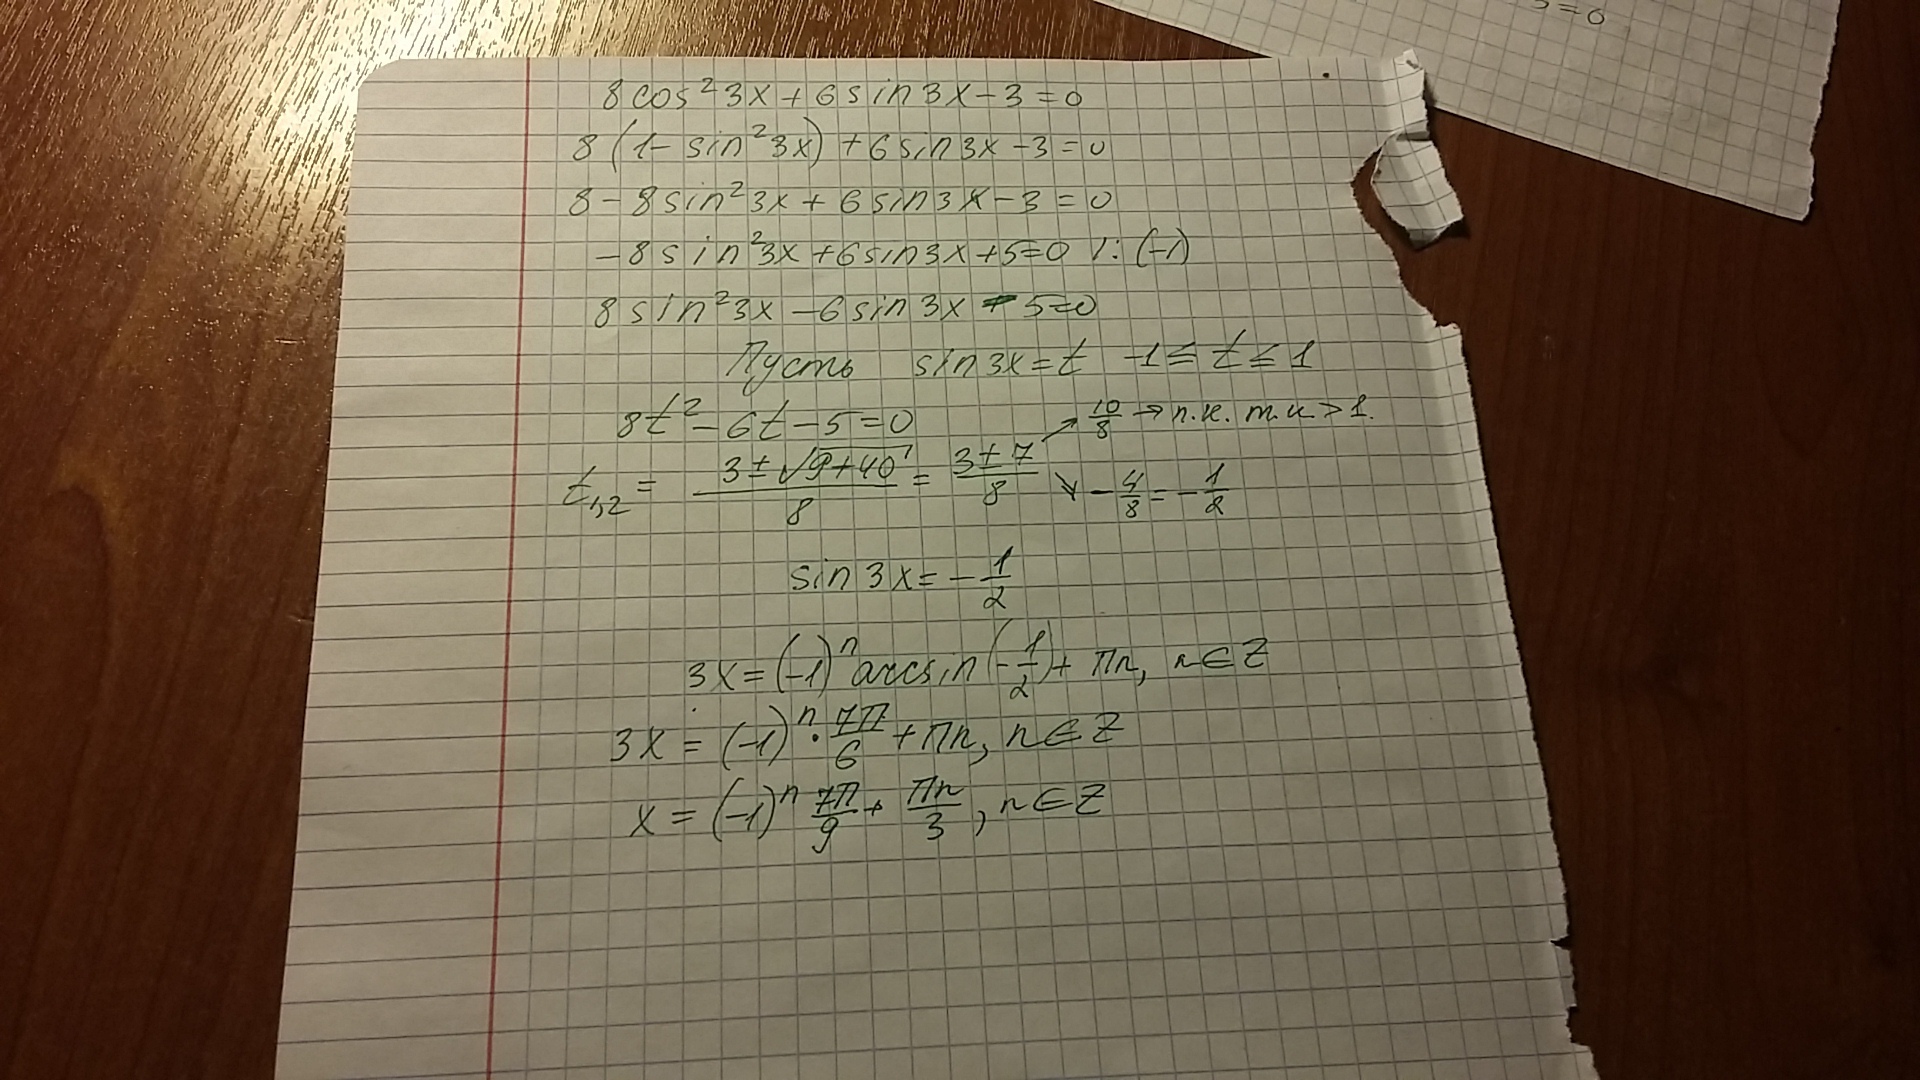 5=0
8cos²3x+6sin3x-3=0
8(1-sin²3x)+6sin3x-3=0
8-8sin²3x+6sin3x-3=0
-8sin²3x+6sin3x+5=0 |:(-1)
8sin²3x-6sin3x-5=0
Пусть sin3x=t -1≤t≤1
8t²-6t-5=0
t₁,₂ = (3±√(9+40))/8 = (3±7)/8 ↗ 10/8 → п.к. т.к >1. ↘ -4/8=-1/2
sin3x=-1/2
3x=(-1)ⁿarcsin(-1/2)+πn, n∈Z
3x=(-1)ⁿ·7π/6+πn, n∈Z
x=(-1)ⁿ 7π/9+πn/3, n∈Z